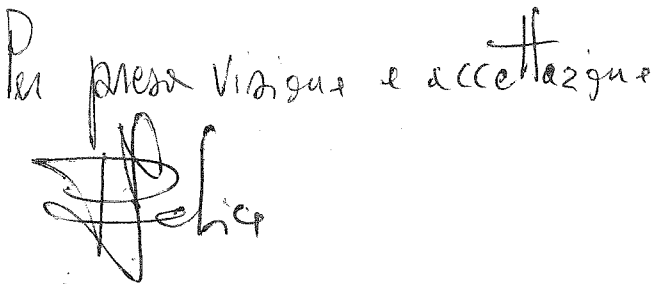 Per presa visione e accettazione